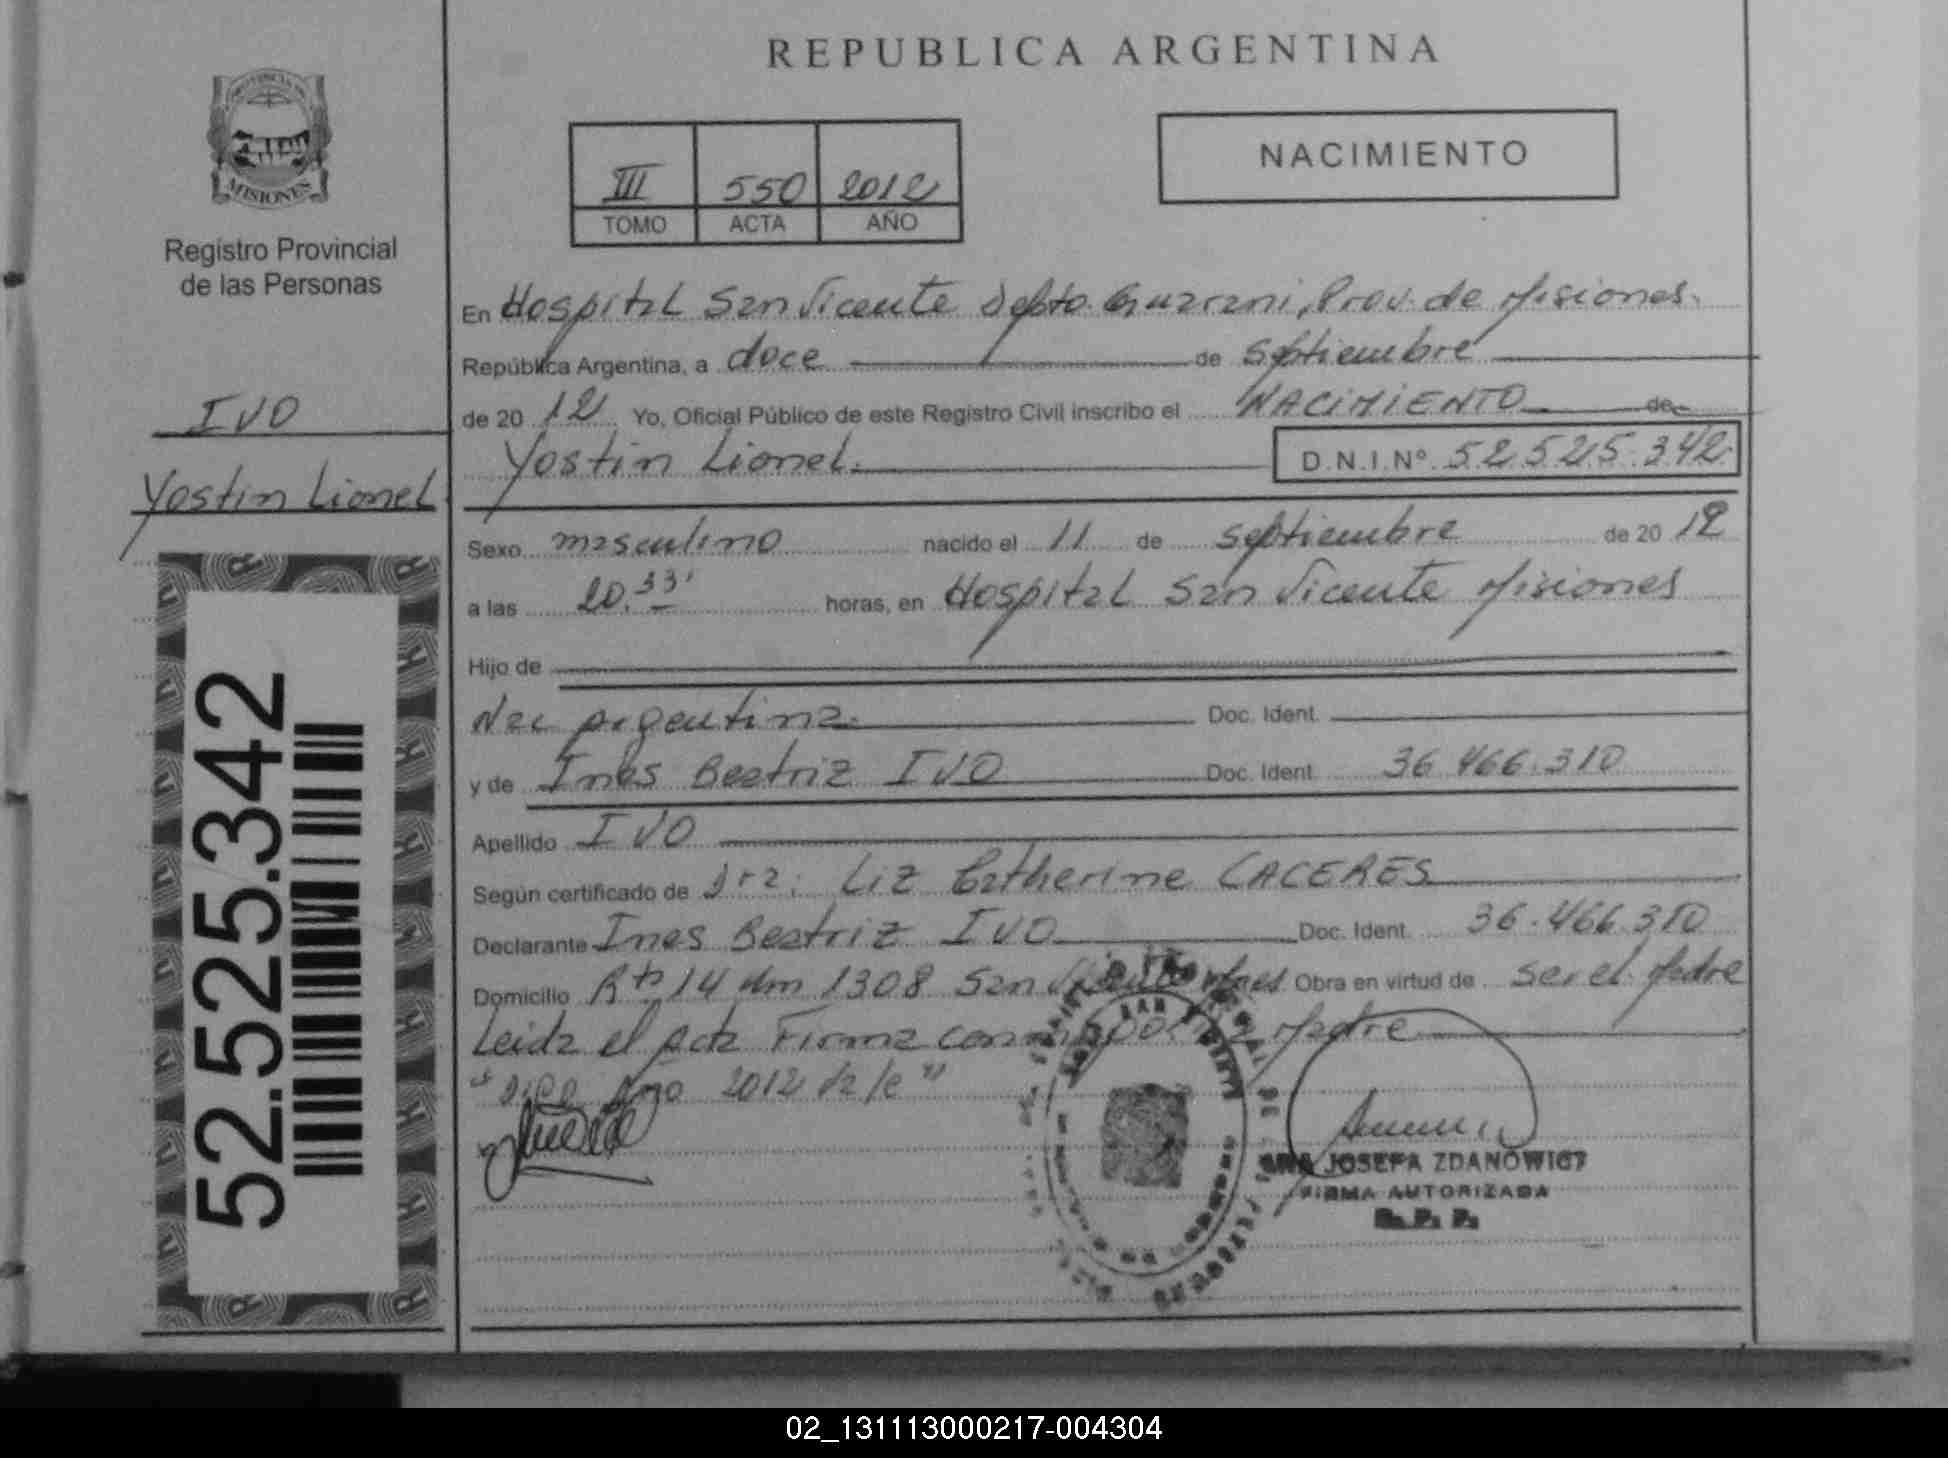 REPUBLICA ARGENTINA
PROVINCIA DE
MISIONES
Registro Provincial
de las Personas
III 550 2012
TOMO ACTA AÑO
NACIMIENTO
IVO
Yostin Lionel
52.525.342
En Hospital San Vicente Depto. Guarani, Prov. de Misiones.
República Argentina, a doce de Septiembre
de 20 12 Yo, Oficial Público de este Registro Civil inscribo el NACIMIENTO de
Yostin Lionel. D.N.I.Nº 52.525.342.
Sexo masculino nacido el 11 de septiembre de 20 12
a las 20.33' horas, en Hospital San Vicente Misiones
Hijo de
Nac Argentina. Doc. Ident.
y de Ines Beatriz IVO Doc. Ident. 36.466.310
Apellido IVO
Según certificado de Dra: Liz Catherine CACERES
Declarante Ines Beatriz IVO Doc. Ident. 36.466.310
Domicilio Rta 14 Km 1308 San Obra en virtud de ser el Madre
Leida el Acta Firma Madre
Año 2012
SAN VICENTE
JOSEFA ZDANOWICZ
FIRMA AUTORIZADA
R. P. P.
02_131113000217-004304